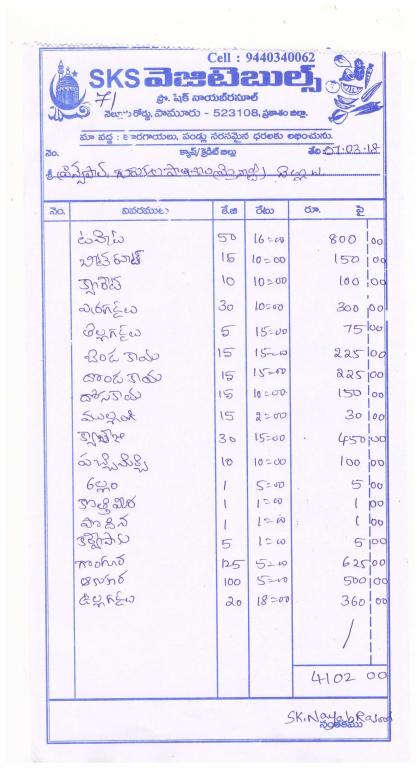 Cell : 9440340062
SKS వెజిటెబుల్స్
71
ప్రొ. షేక్ నాయబ్‌రసూల్
నెల్లూరు రోడ్డు, పామూరు - 523108, ప్రకాశం జిల్లా.
మా వద్ద : కూరగాయలు, పండ్లు సరసమైన ధరలకు లభించును.
నెం. క్యాష్/క్రెడిట్ బిల్లు తేది 01.03.18
శ్రీ ప్రిన్సిపాల్,
నెం. వివరములు కే.జి రేటు రూ. పై
టమోట 50 16=00 800 00
బీట్ రూట్ 15 10=00 150 00
క్యారెట్ 10 10=00 100 00
ఎర్రగడ్డలు 30 10=00 300 00
తెల్లగడ్డలు 5 15=00 75 00
బెండకాయ 15 15=00 225 00
దొండకాయ 15 15=00 225 00
దోసకాయ 15 10=00 150 00
ముల్లంగి 15 2=00 30 00
క్యాబేజి 30 15=00 450 00
పచ్చిమిర్చి 10 10=00 100 00
అల్లం 1 5=00 5 00
కొత్తిమీర 1 1=00 1 00
పొదిన 1 1=00 1 00
కర్వేపాకు 5 1=00 5 00
గోంగూర 125 5=00 625 00
ఆకుకూర 100 5=00 500 00
ఉల్లగడ్డలు 20 18=00 360 00
4102 00
SK.Nayab Rasool
సంతకము